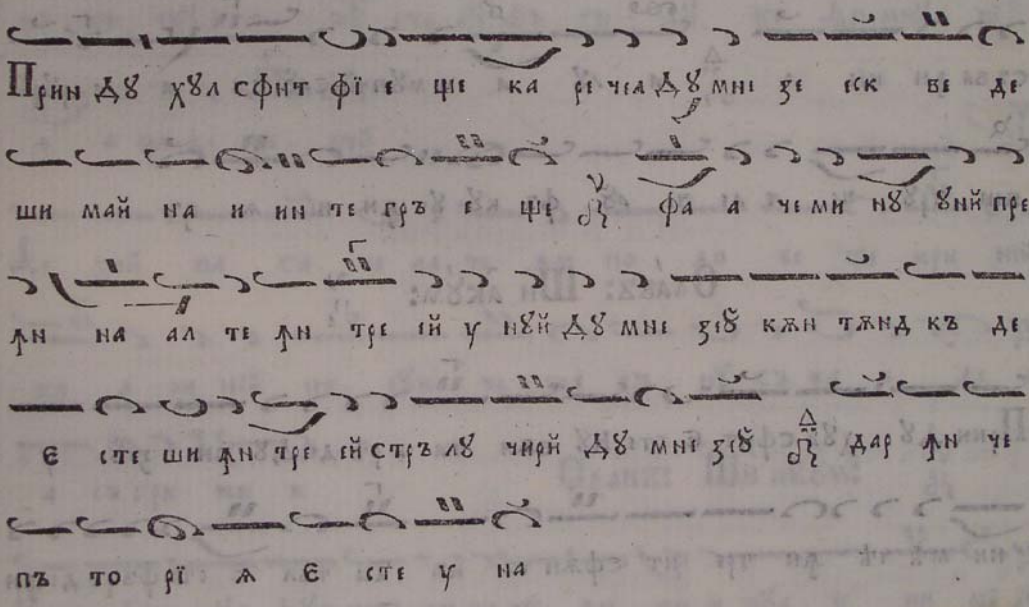 Прин Дꙋ хꙋл сфнт фї е ще ка ре чеа Дꙋ мне зе еск ве де
ши май на и ин те гръ е ще фа а че ми нꙋ ꙋнй пре
ꙟн на ал те ꙟн тре ей у нꙋй Дꙋ мне зеꙋ кѫн тѫнд къ де
Є сте ши ꙟн тре ей стръ лꙋ чирй Дꙋ мне зеꙋ дар ꙟн че
пъ то рї ѧ Є сте у на